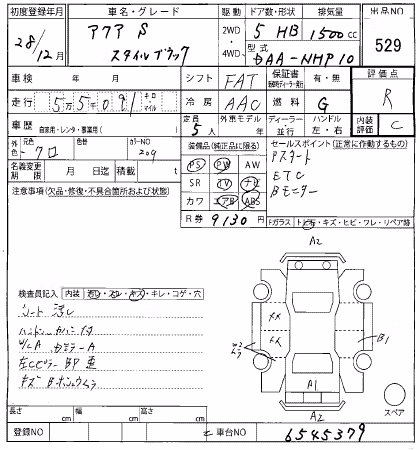 初度登録年月 車名・グレード 駆動 ドア数・形状 排気量 出品NO
28/12月 アクア S 2WD 5 HB 1500cc 529
スタイルブラック 4WD 型式 DAA-NHP10
車検 年 月 シフト FAT 保証書 有・無 評価点
走行 55091 キロ・マイル 冷房 AAC 燃料 G R
車歴 自家用・レンタ・事業用( ) 定員 5人 外車モデル 年 ディーラー 並行 ハンドル 左・右 内装評価 C
外色 元色 クロ 色替 カラーNO 209 装備品(純正品に限る) セールスポイント(正常に作動するもの)
名義変更期限 月 日迄 積載 t PS PW AW Pスタート
注意事項(欠品・修復・不具合箇所および状態) SR TV ナビ ETC
カワ エアB ABS Bモニター
R券 9130円 Fガラス トビ石・キズ・ヒビ・ワレ・リペア特
A2
検査員記入 内装 汚レ・スレ・キズ・キレ・コゲ・穴
シート汚レ
ハンドルカバー付
B1
キズ
A1
A2 スペア
長さ cm 幅 cm 高さ cm
登録NO 車台NO 6545379